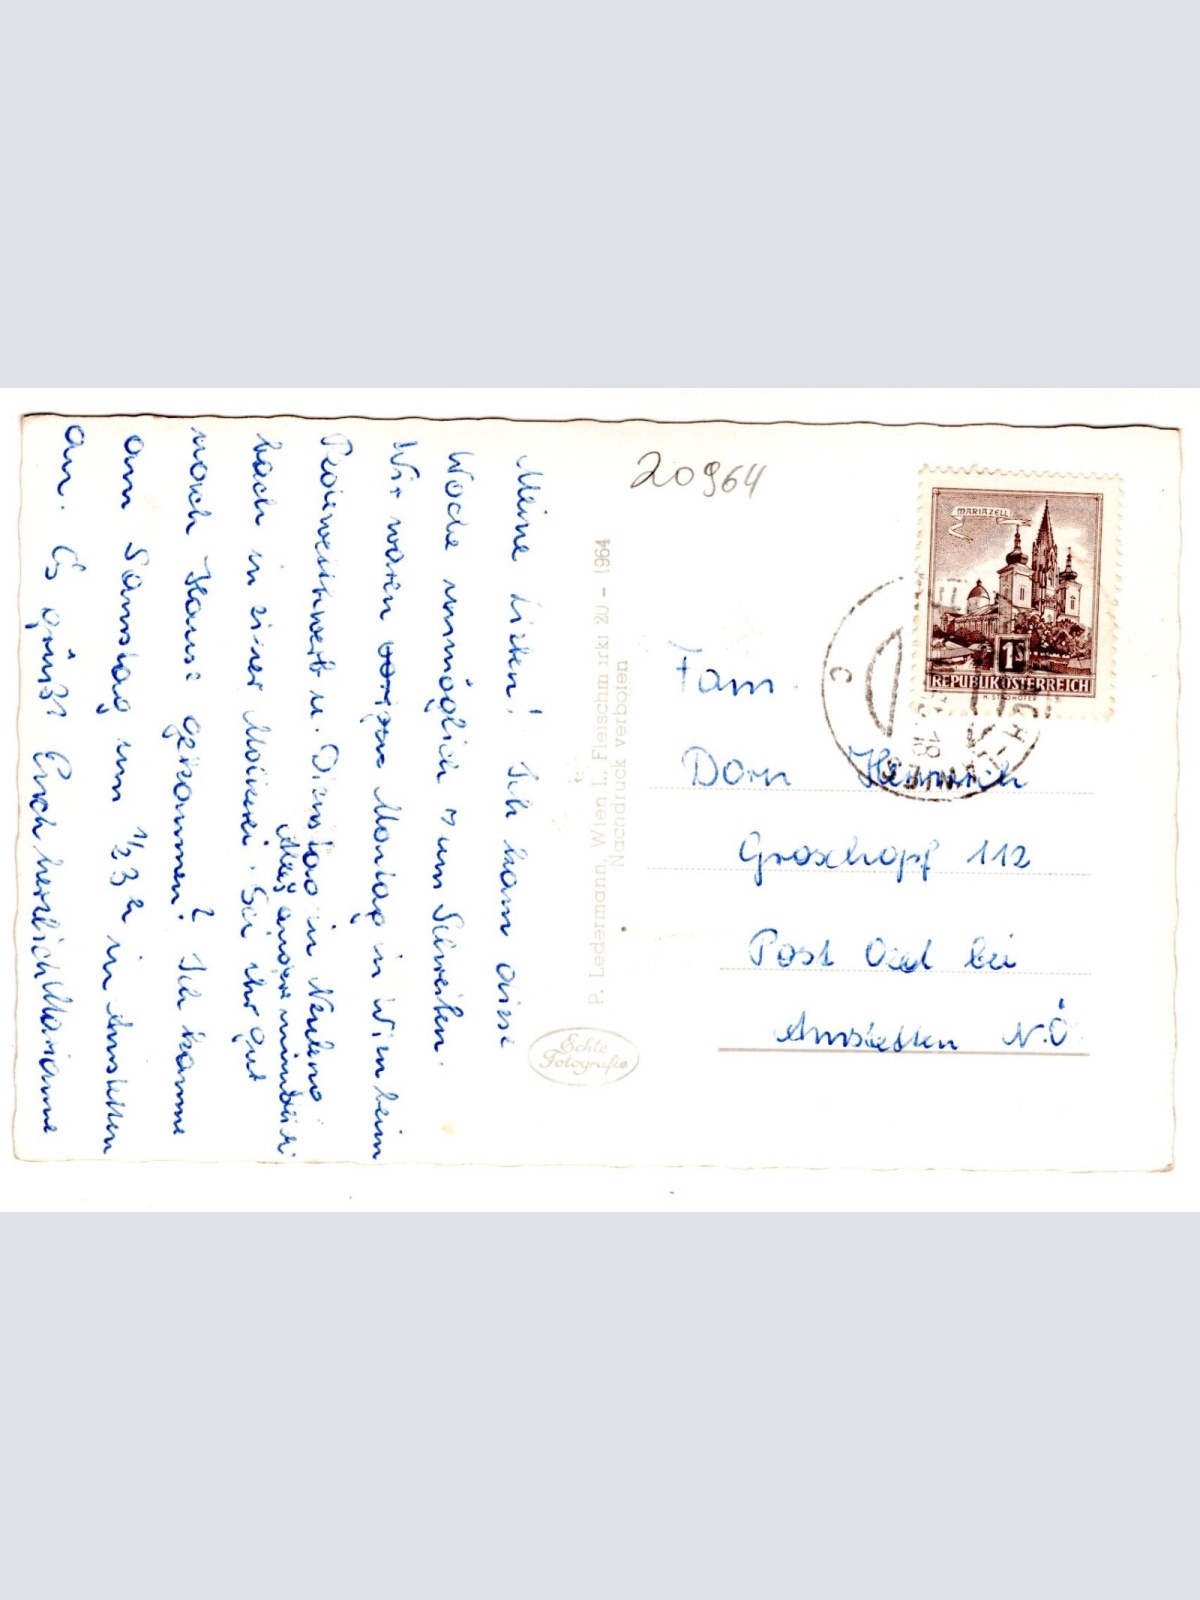 Meine Lieben! Ich kam diese
Woche unmöglich zum Schreiben.
Wir waren vorigen Montag in Wien beim
Redewettbewerb u. Dienstag in Neuleng-
bach in einer Molkerei. Seid ihr gut
nach Hause gekommen? Ich komme
am Samstag um 1/2 3 h in Amstetten
an. Es grüßt Euch herzlich Marianne
20964
P. Ledermann, Wien I., Fleischmarkt 20 – 1964
Nachdruck verboten
Echte
Fotografie
MARIAZELL
1S
REPUBLIK ÖSTERREICH
C
18
Fam.
Dorn Heinrich
Groschopf 112
Post Oed bei
Amstetten N.Ö.